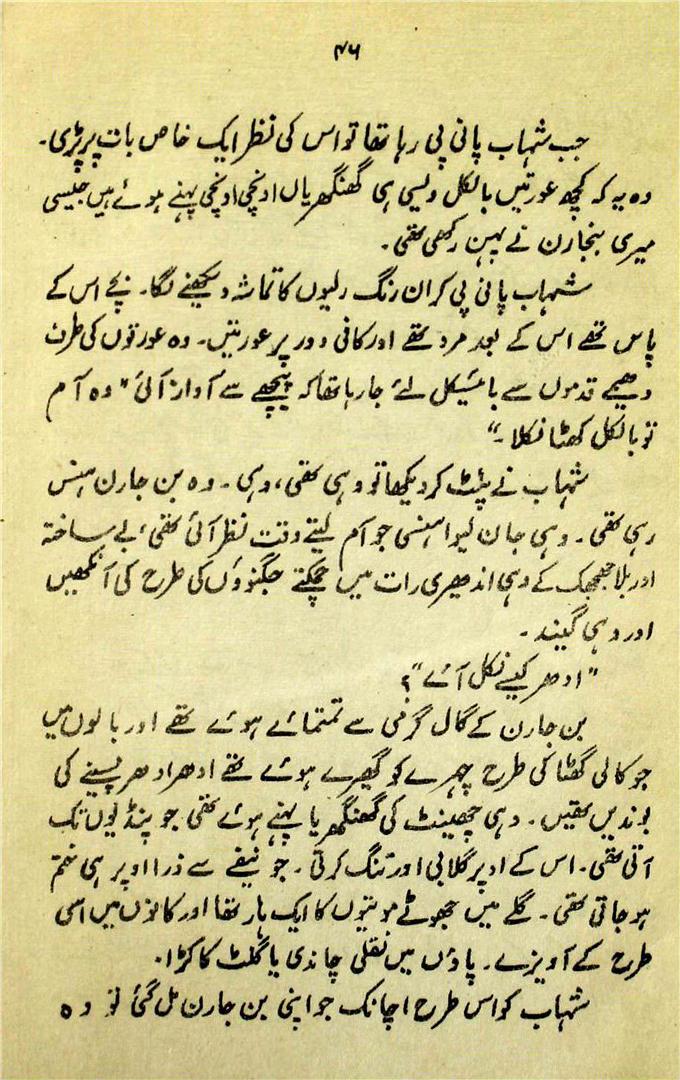 ۴۶
جب شہاب پانی پی رہا تھا تو اس کی نظر ایک خاص بات پر پڑی۔
وہ یہ کہ کچھ عورتیں بالکل ویسی ہی گھنگھریاں اونچی اونچی پہنے ہوئے ہیں جیسی
میری بنجارن نے پہن رکھی تھی۔
شہاب پانی پی کر ان رنگ رلیوں کا تماشہ دیکھنے لگا۔ بچے اس کے
پاس تھے اس کے بعد مرد تھے اور کافی دور پر عورتیں۔ وہ عورتوں کی طرف
دھیمے قدموں سے بائیسکل لئے جا رہا تھا کہ پیچھے سے آواز آئی "وہ آم
تو بالکل کھٹا نکلا۔"
شہاب نے پلٹ کر دیکھا تو وہی تھی، وہی۔ وہ بن جارن ہنس
رہی تھی۔ وہی جان لیوا ہنسی جو آم لیتے وقت نظر آئی تھی، بے ساختہ
اور بلا جھجھک کے وہی اندھیری رات میں چمکتے جگنوؤں کی طرح کی آنکھیں
اور وہی گیند۔
"ادھر کیسے نکل آئے"؟
بن جارن کے گال گرمی سے تمتمائے ہوئے تھے اور بالوں میں
جو کالی گھٹا کی طرح چہرے کو گھیرے ہوئے تھے ادھر ادھر پسینے کی
بوندیں تھیں۔ وہی چھینٹ کی گھنگھریا پہنے ہوئے تھی جو پنڈلیوں تک
آتی تھی۔ اس کے اوپر گلابی اور تنگ کرتی۔ جو نیفے سے ذرا اوپر ہی ختم
ہو جاتی تھی۔ گلے میں جھوٹے موتیوں کا ایک ہار تھا اور کانوں میں اسی
طرح کے آویزے۔ پاؤں میں نقلی چاندی یا گلٹ کا کڑا۔
شہاب کو اس طرح اچانک جو اپنی بن جارن مل گئی تو وہ